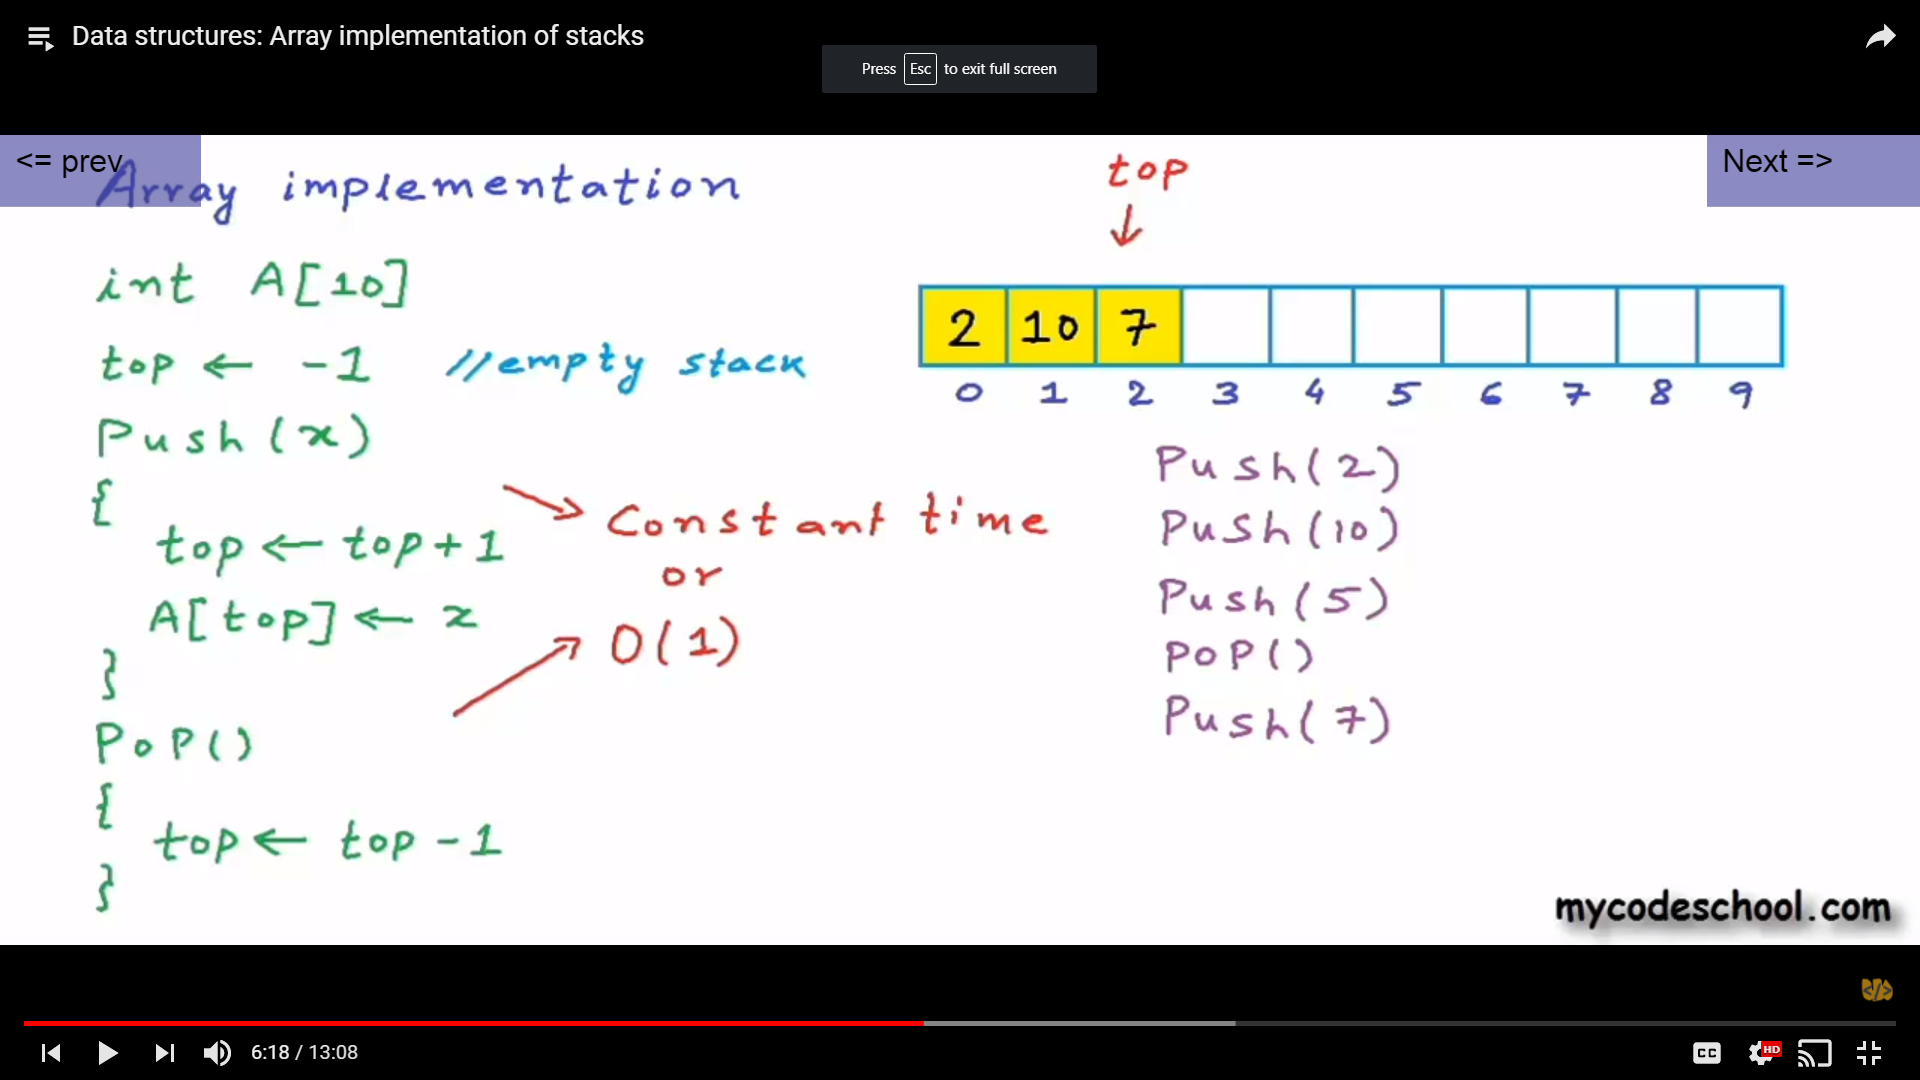 Data structures: Array implementation of stacks
Press Esc to exit full screen
<= prev
Next =>
Array implementation
top
int A[10]
2 10 7
top ← -1 //empty stack
0 1 2 3 4 5 6 7 8 9
Push(x)
{
top ← top+1
A[top] ← x
}
Constant time
or
O(1)
Pop()
{
top ← top -1
}
Push(2)
Push(10)
Push(5)
Pop()
Push(7)
mycodeschool.com
</>
6:18 / 13:08
CC
HD